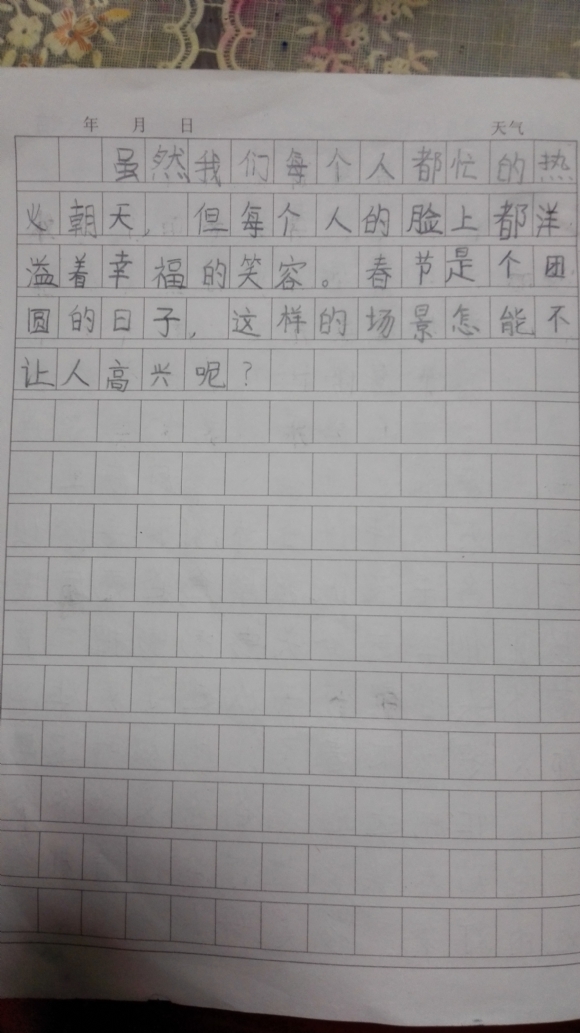 年 月 日 天气
虽然我们每个人都忙的热
火朝天，但每个人的脸上都洋
溢着幸福的笑容。春节是个团
圆的日子，这样的场景怎能不
让人高兴呢？